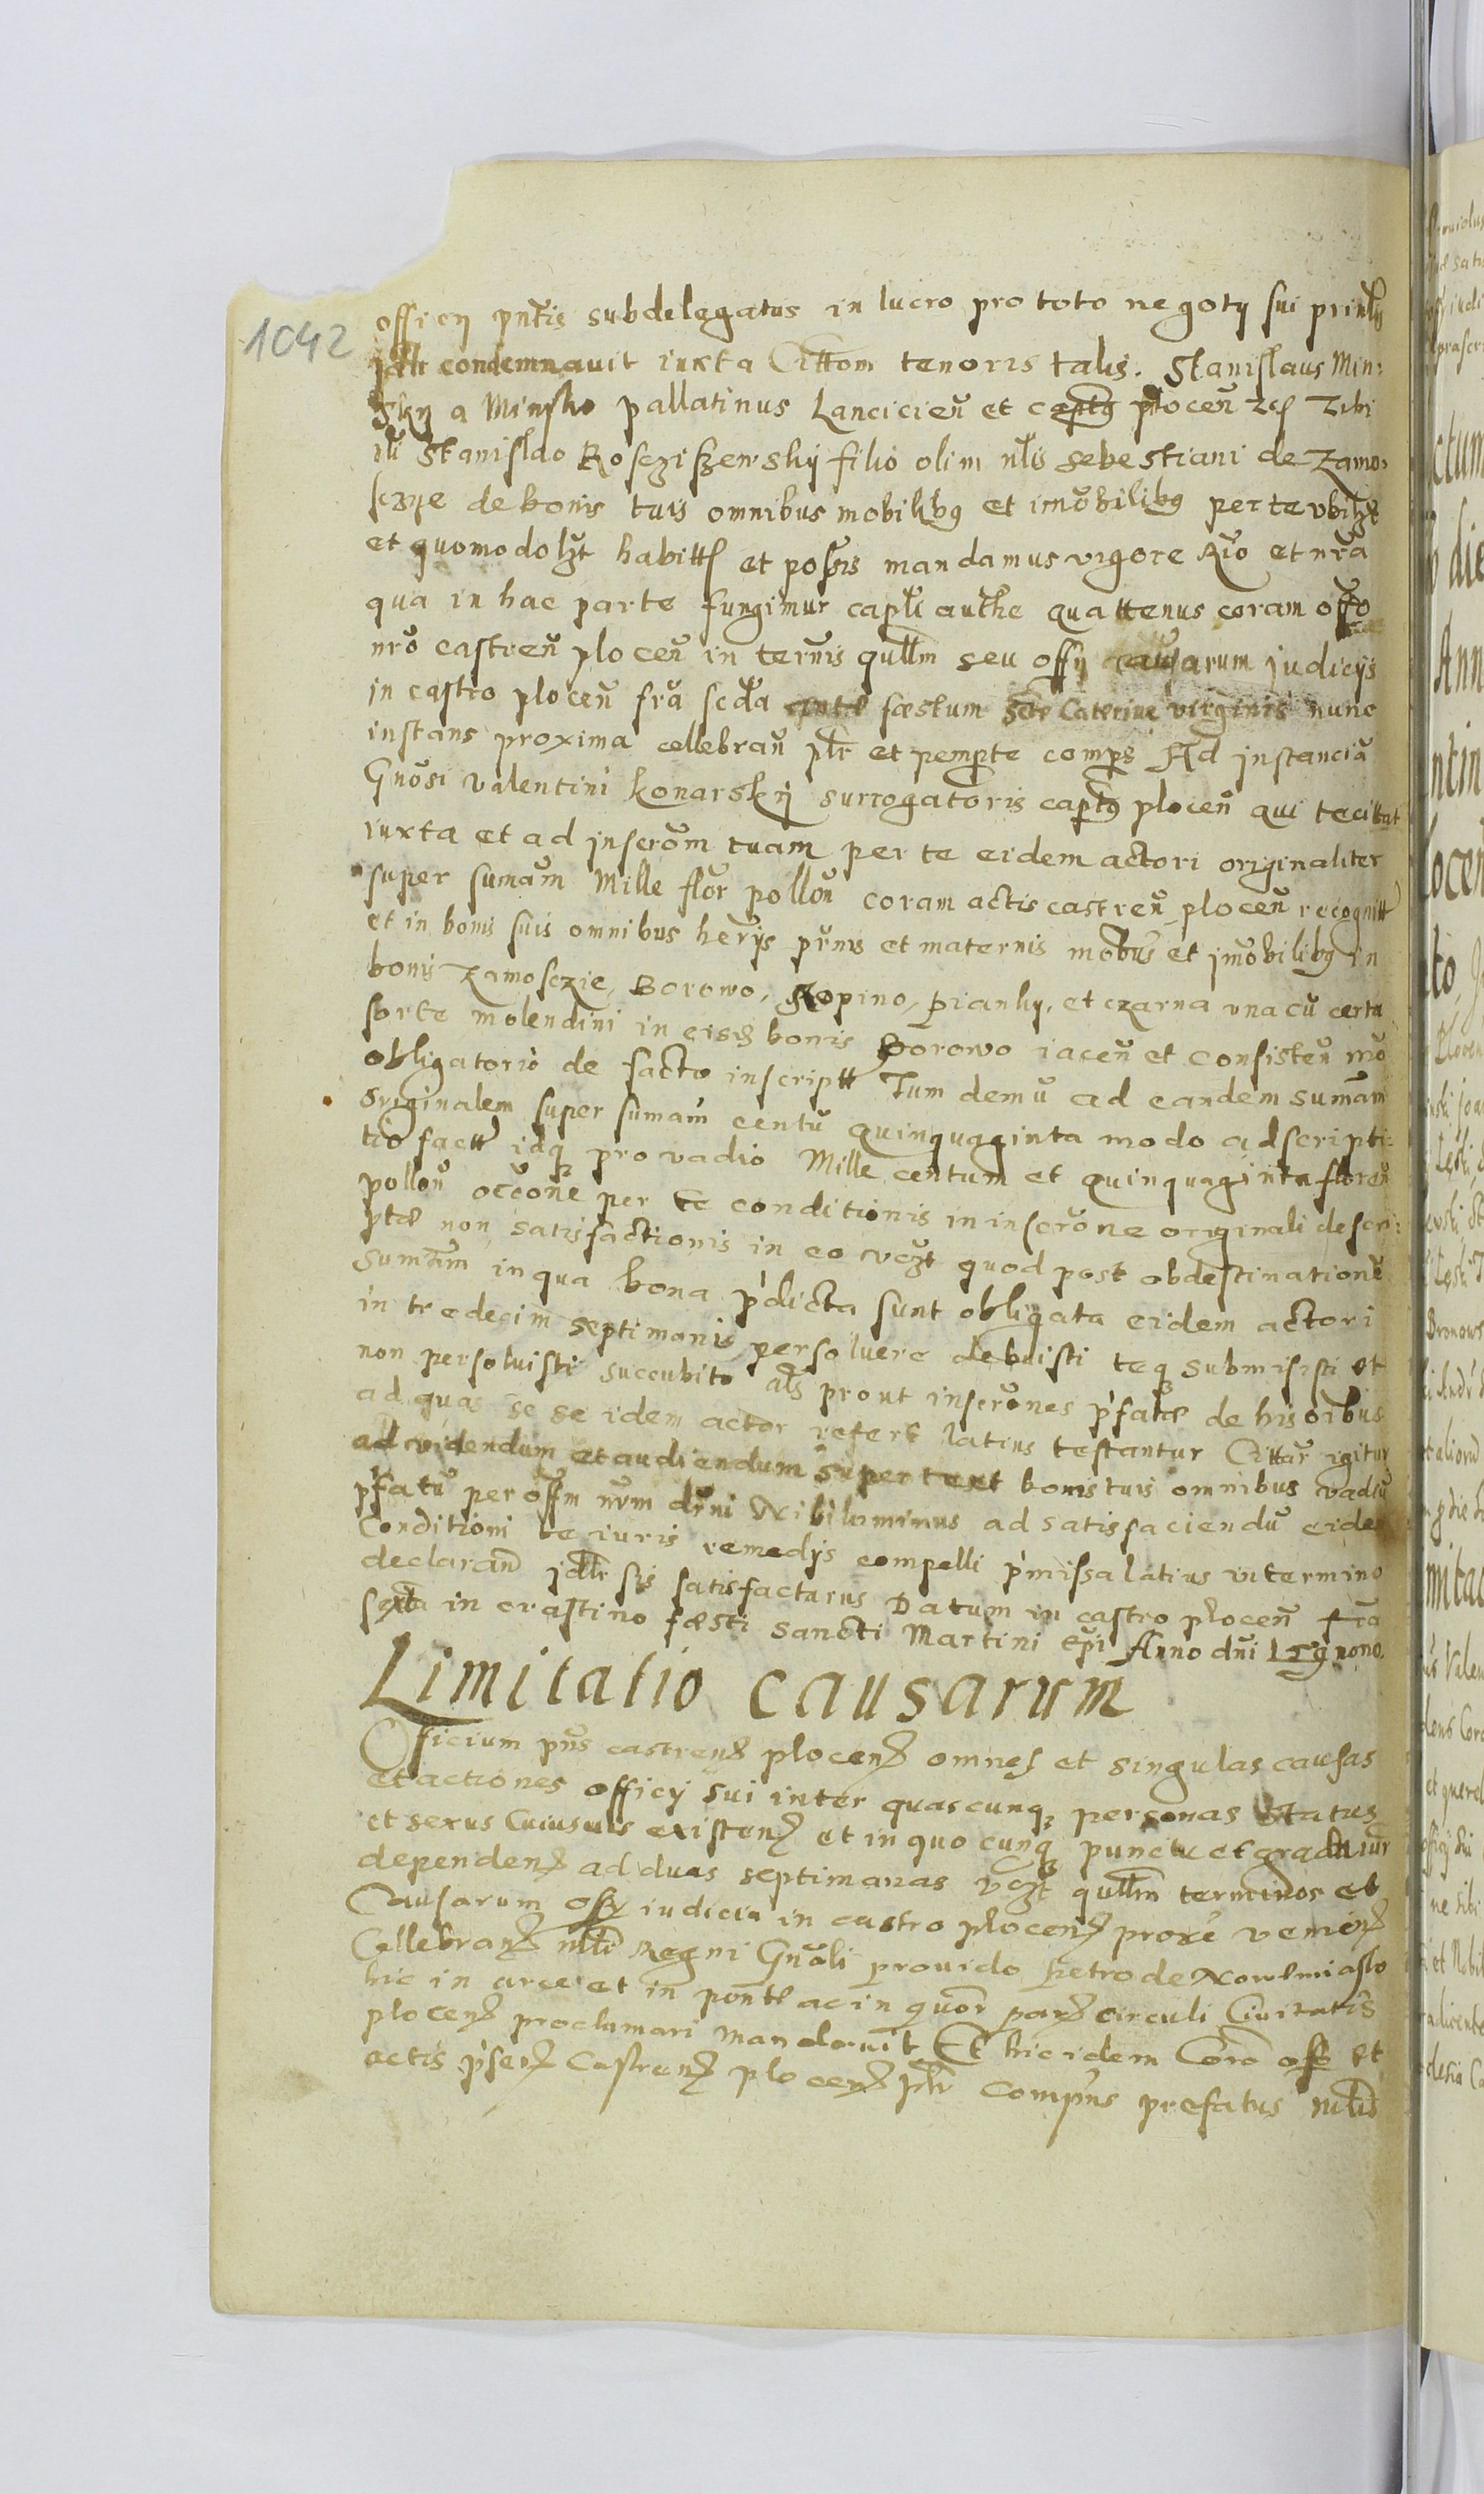 1042
officy pntis subdelegatus in lucro pro toto negoty sui prinlis
jdtr condemnavit iuxta Cittom tenoris talis. Stanislaus Min:
skij a Minsko pallatinus Lancicien et captus plocen Tibi
nli Stanislao Rosczisewskij filio olim nlis sebestiani de Zamo:
sczye de bonis tuis omnibus mobilibg et imobilibg per te vbilzt
et quomodolzt habitt et possis mandamus vigore Rio et nra
qua in hac parte fungimur captli authe quattenus coram offo
nro castren plocen in termis qullm seu offy causarum judicijs
in castro plocen fra scda ante fœstum Scte Caterine virginis nunc
instans proxima cellebran ptr et pempte compe Ad jnstancia
Gnosi valentini konarskij surrogatoris captg plocen qui te cittat
iuxta et ad jnscrom tuam per te eidem actori originaliter
super sumam Mille flor pollon coram actis castren plocen recognitt
et in bonis suis omnibus herijs prnis et maternis mobus et jmobilibg in
bonis Zamosczie, Borowo, Ropino, Pianky, et czarna vna cu certa
sorte molendini in eisd bonis Borowo iacen et consisten mo
obligatorio de facto inscriptt Tum demu ad eandem sumam
originalem super sumam centu quinquaginta modo adscripti:
tio factt idq pro vadio Mille centum et quinquaginta floren
pollon occone per te conditionis in inscrone originali descri:
ptæ non satisfactionis in eo vczt quod post obdestinatione
sumam in qua bona p'dicta sunt obligata eidem actori
in tredecim septimanis persoluere debuisti teq submisisti et
non persoluisti succubito als prout inscrones p'fatæ de his oibus
ad quas se se idem actor refert latius testantur Cittar igitur
ad videndum et audiendum super te et bonis tuis omnibus vadiu
p'fatu per offm nrm drni Nihilominus ad satisfaciendu eidem
Conditioni te iuris remedijs compelli p'missa latius in termino
declaran jdtr sis satisfacturus Datum in castro plocen fra
sexta in crastino fœsti sancti Martini epi Anno dni 159 nono.
Limitatio causarum
Officium pns castren plocen omnes et singulas causas
et actiones officy sui inter quascunq personas status
et sexus cuiusuis existen et in quocunq punctu et gradu iur
dependen ad duas septimanas vczt qullm terminos et
Causarum offy iudicia in castro plocen proxe venien
Cellebran mlli Regni Gnali prouido petro de Nowemiasto
hic in arce et in ponte ac in quor par circuli Ciuitatis
plocen proclamari mandauit Et hic idem Cora offo et
actis p'sen Castren plocen ptr Compns prefatus mlis